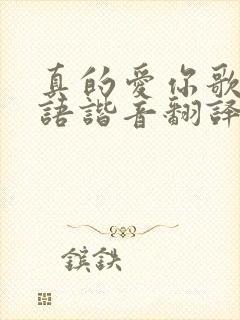 真的愛你歌
語諧音翻譯
鑌鉄